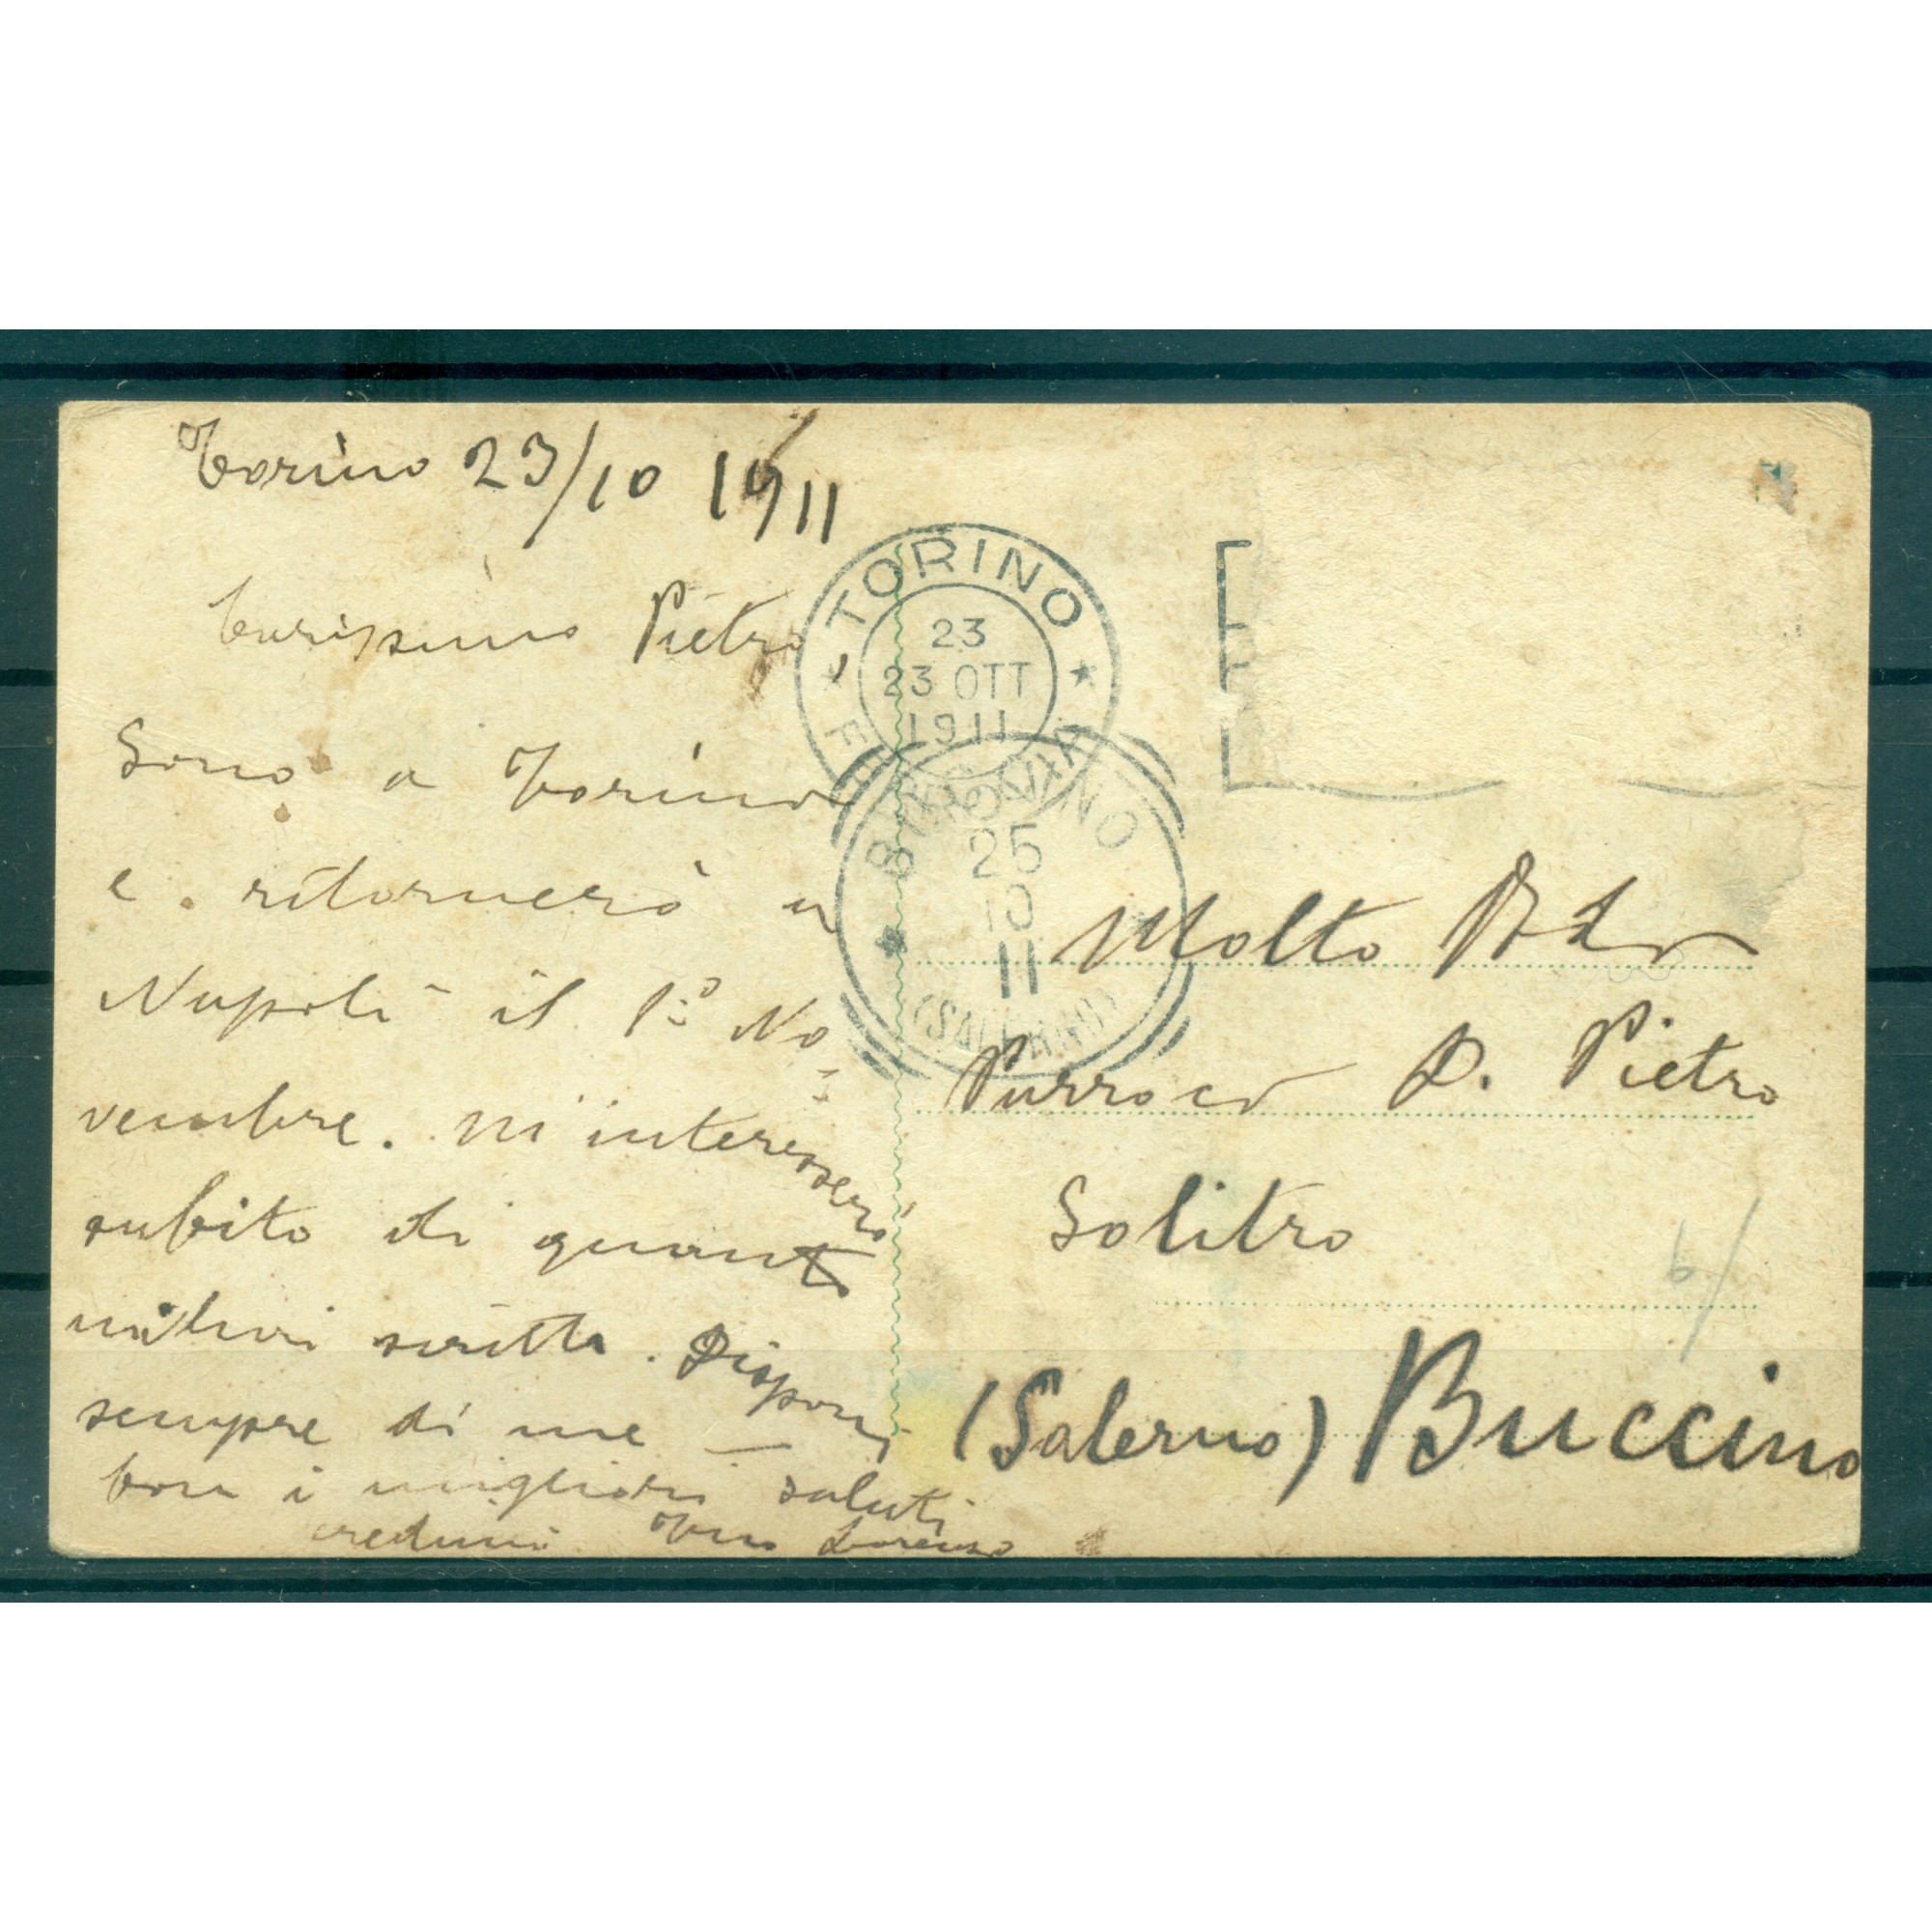 Torino 23/10 1911
Carissimo Pietro
Sono a Torino
e ritornerò a
Napoli il 1º No-
vembre. M'interesserò
subito di quanto
mi hai scritto. Disponi
sempre di me —
Con i migliori saluti
credimi Tuo Lorenzo
TORINO
23
23 OTT
1911
FERROVIA
BUCCINO
25
10
11
(SALERNO)
Molto Rdo
Parroco D. Pietro
Solitro
(Salerno) Buccino